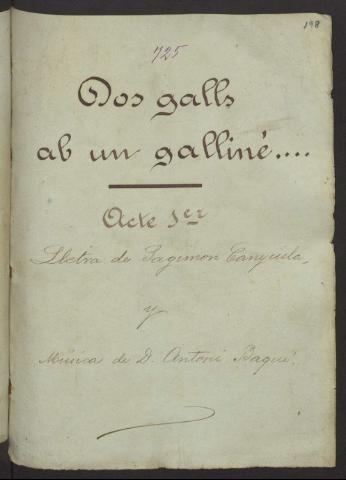 198
725
Dos galls
ab un galliné....
Acte 1er
Lletra de Sagimon Canyuela,
y
Música de D. Antoni Baqué.